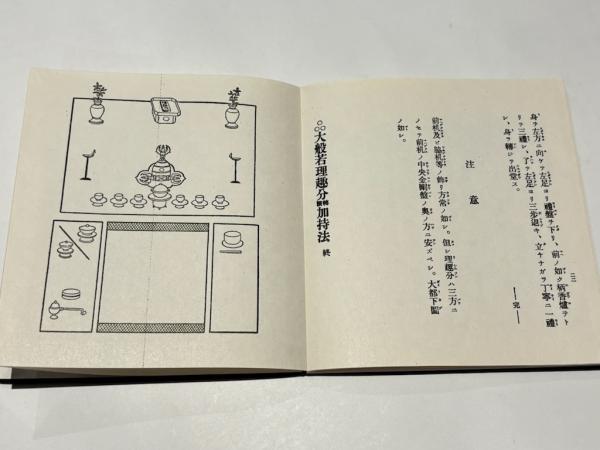 二三
身ヲ左方ニ向ケテ左足ヨリ禮盤ヲ下リ、前ノ如ク柄香爐ヲト
リテ三禮シ、了テ左足ヨリ三歩退キ、立チナガラ丁寧ニ一禮
シ、身ヲ轉ジテ出堂ス。
―完―
注意
前机及ビ脇机等ノ飾リ方常ノ如シ。但シ理趣分ハ三方ニ
ノセテ前机ノ中央金剛盤ノ奥ノ方ニ安ズベシ。大都下圖
ノ如シ。
○○大般若理趣分加持法 終